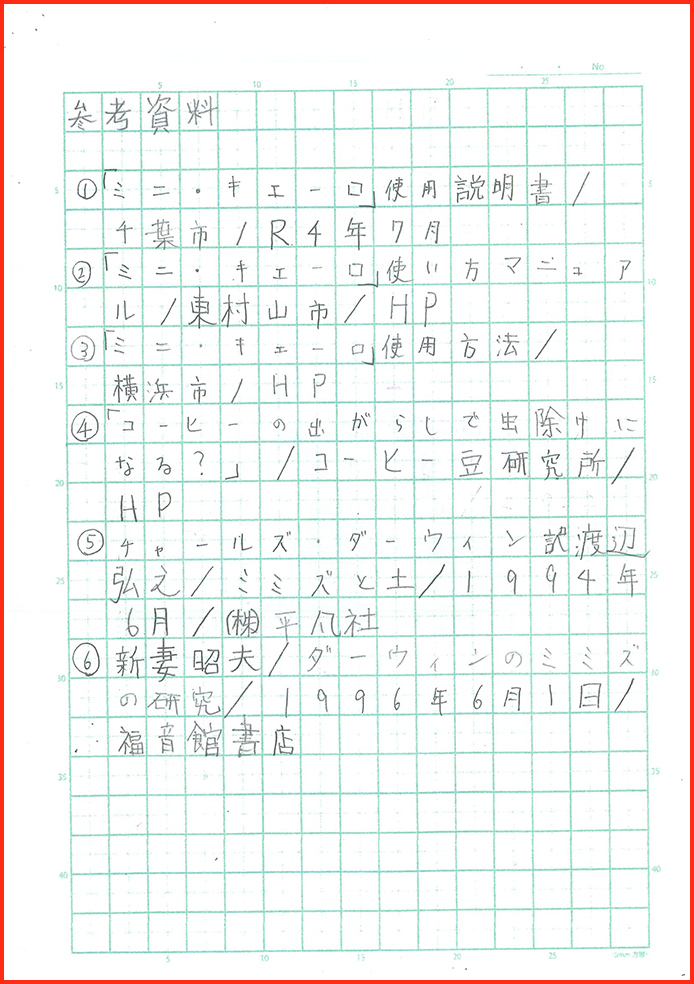 No
参考資料
①「ミニ・キエーロ」使用説明書/
千葉市/R4年7月
②「ミニ・キエーロ」使い方マニュア
ル/東村山市/HP
③「ミニ・キエーロ」使用方法/
横浜市/HP
④「コーヒーの出がらしで虫除けに
なる?」/コーヒー豆研究所/
HP
⑤チャールズ・ダーウィン訳渡辺
弘之/ミミズと土/1994年
6月/(株)平凡社
⑥新妻昭夫/ダーウィンのミミズ
の研究/1996年6月1日/
福音館書店